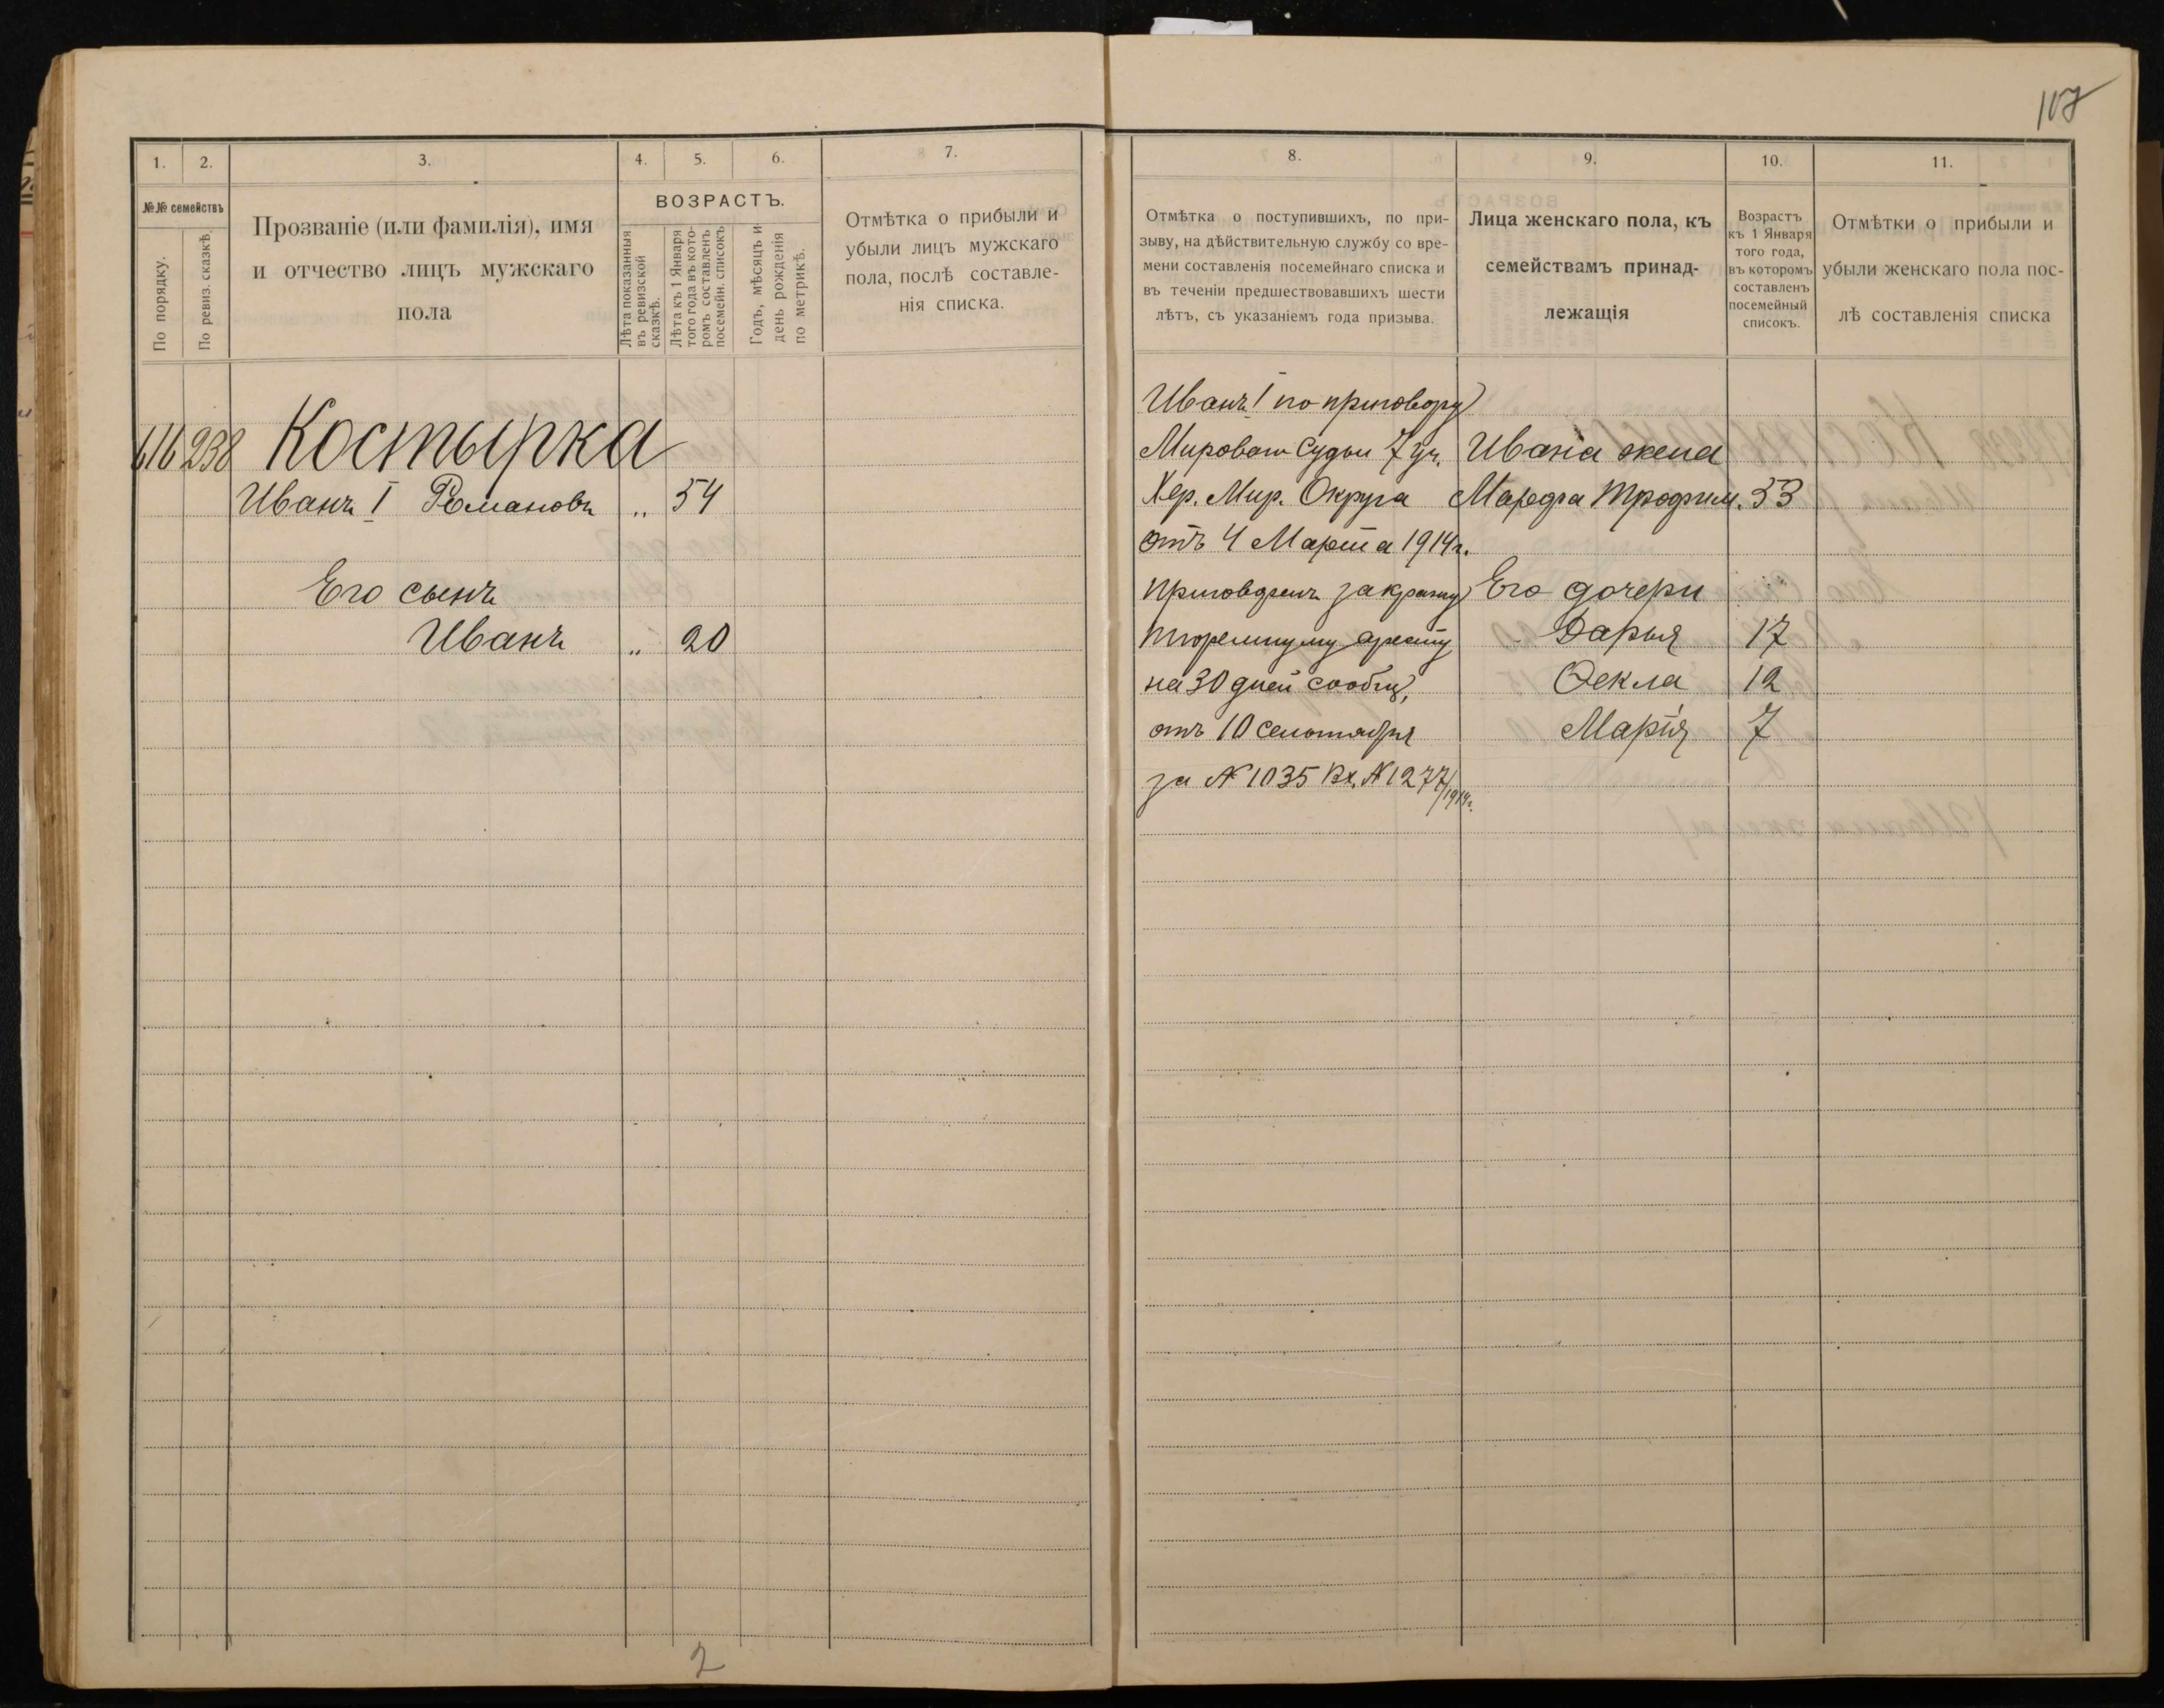 107
1.
2.
3.
4.
5.
6.
7.
№№ семействъ
По порядку.
По ревиз. сказкѣ.
Прозваніе (или фамилія), имя
и отчество лицъ мужскаго
пола
ВОЗРАСТЪ.
Лѣта показанныя
въ ревизской
сказкѣ.
Лѣта къ 1 Января
того года въ кото-
ромъ составленъ
посемейн. списокъ
Годъ, мѣсяцъ и
день рожденія
по метрикѣ.
Отмѣтка о прибыли и
убыли лицъ мужскаго
пола, послѣ составле-
нія списка.
616 238 Костырка
Иванъ I Романовъ „ 54
Его сынъ
Иванъ „ 20
2
8.
9.
10.
11.
Отмѣтка о поступившихъ, по при-
зыву, на дѣйствительную службу со вре-
мени составленія посемейнаго списка и
въ теченіи предшествовавшихъ шести
лѣтъ, съ указаніемъ года призыва.
Лица женскаго пола, къ
семействамъ принад-
лежащія
Возрастъ
къ 1 Января
того года,
въ которомъ
составленъ
посемейный
списокъ.
Отмѣтки о прибыли и
убыли женскаго пола пос-
лѣ составленія списка
Иванъ I по приговору
Мирового Судьи 7 уч.
Хер. Мир. Округа
отъ 4 Марта 1914г.
приговоренъ за кражу
тюремному аресту
на 30 дней сообщ,
отъ 10 сентября
за № 1035 Вх. № 1277/1914г.
Ивана жена
Марфа Трофим. 33
Его дочери
Дарья 17
Ѳекла 12
Марія 7